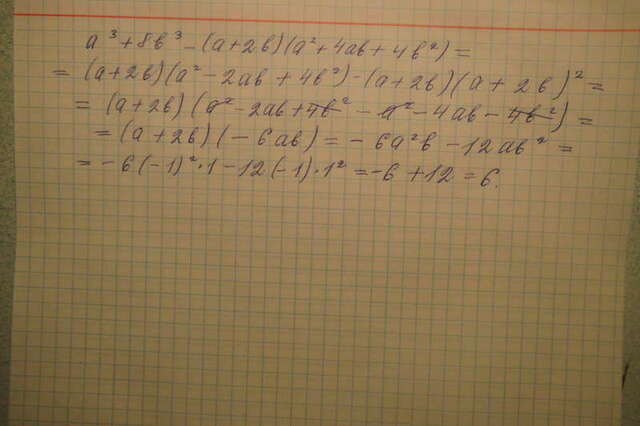 a³ + 8b³ - (a + 2b)(a² + 4ab + 4b²) =
= (a + 2b)(a² - 2ab + 4b²) - (a + 2b)(a + 2b)² =
= (a + 2b)(a² - 2ab + 4b² - a² - 4ab - 4b²) =
= (a + 2b)(- 6ab) = - 6a²b - 12ab² =
= - 6(-1)²·1 - 12(-1)·1² = -6 + 12 = 6.